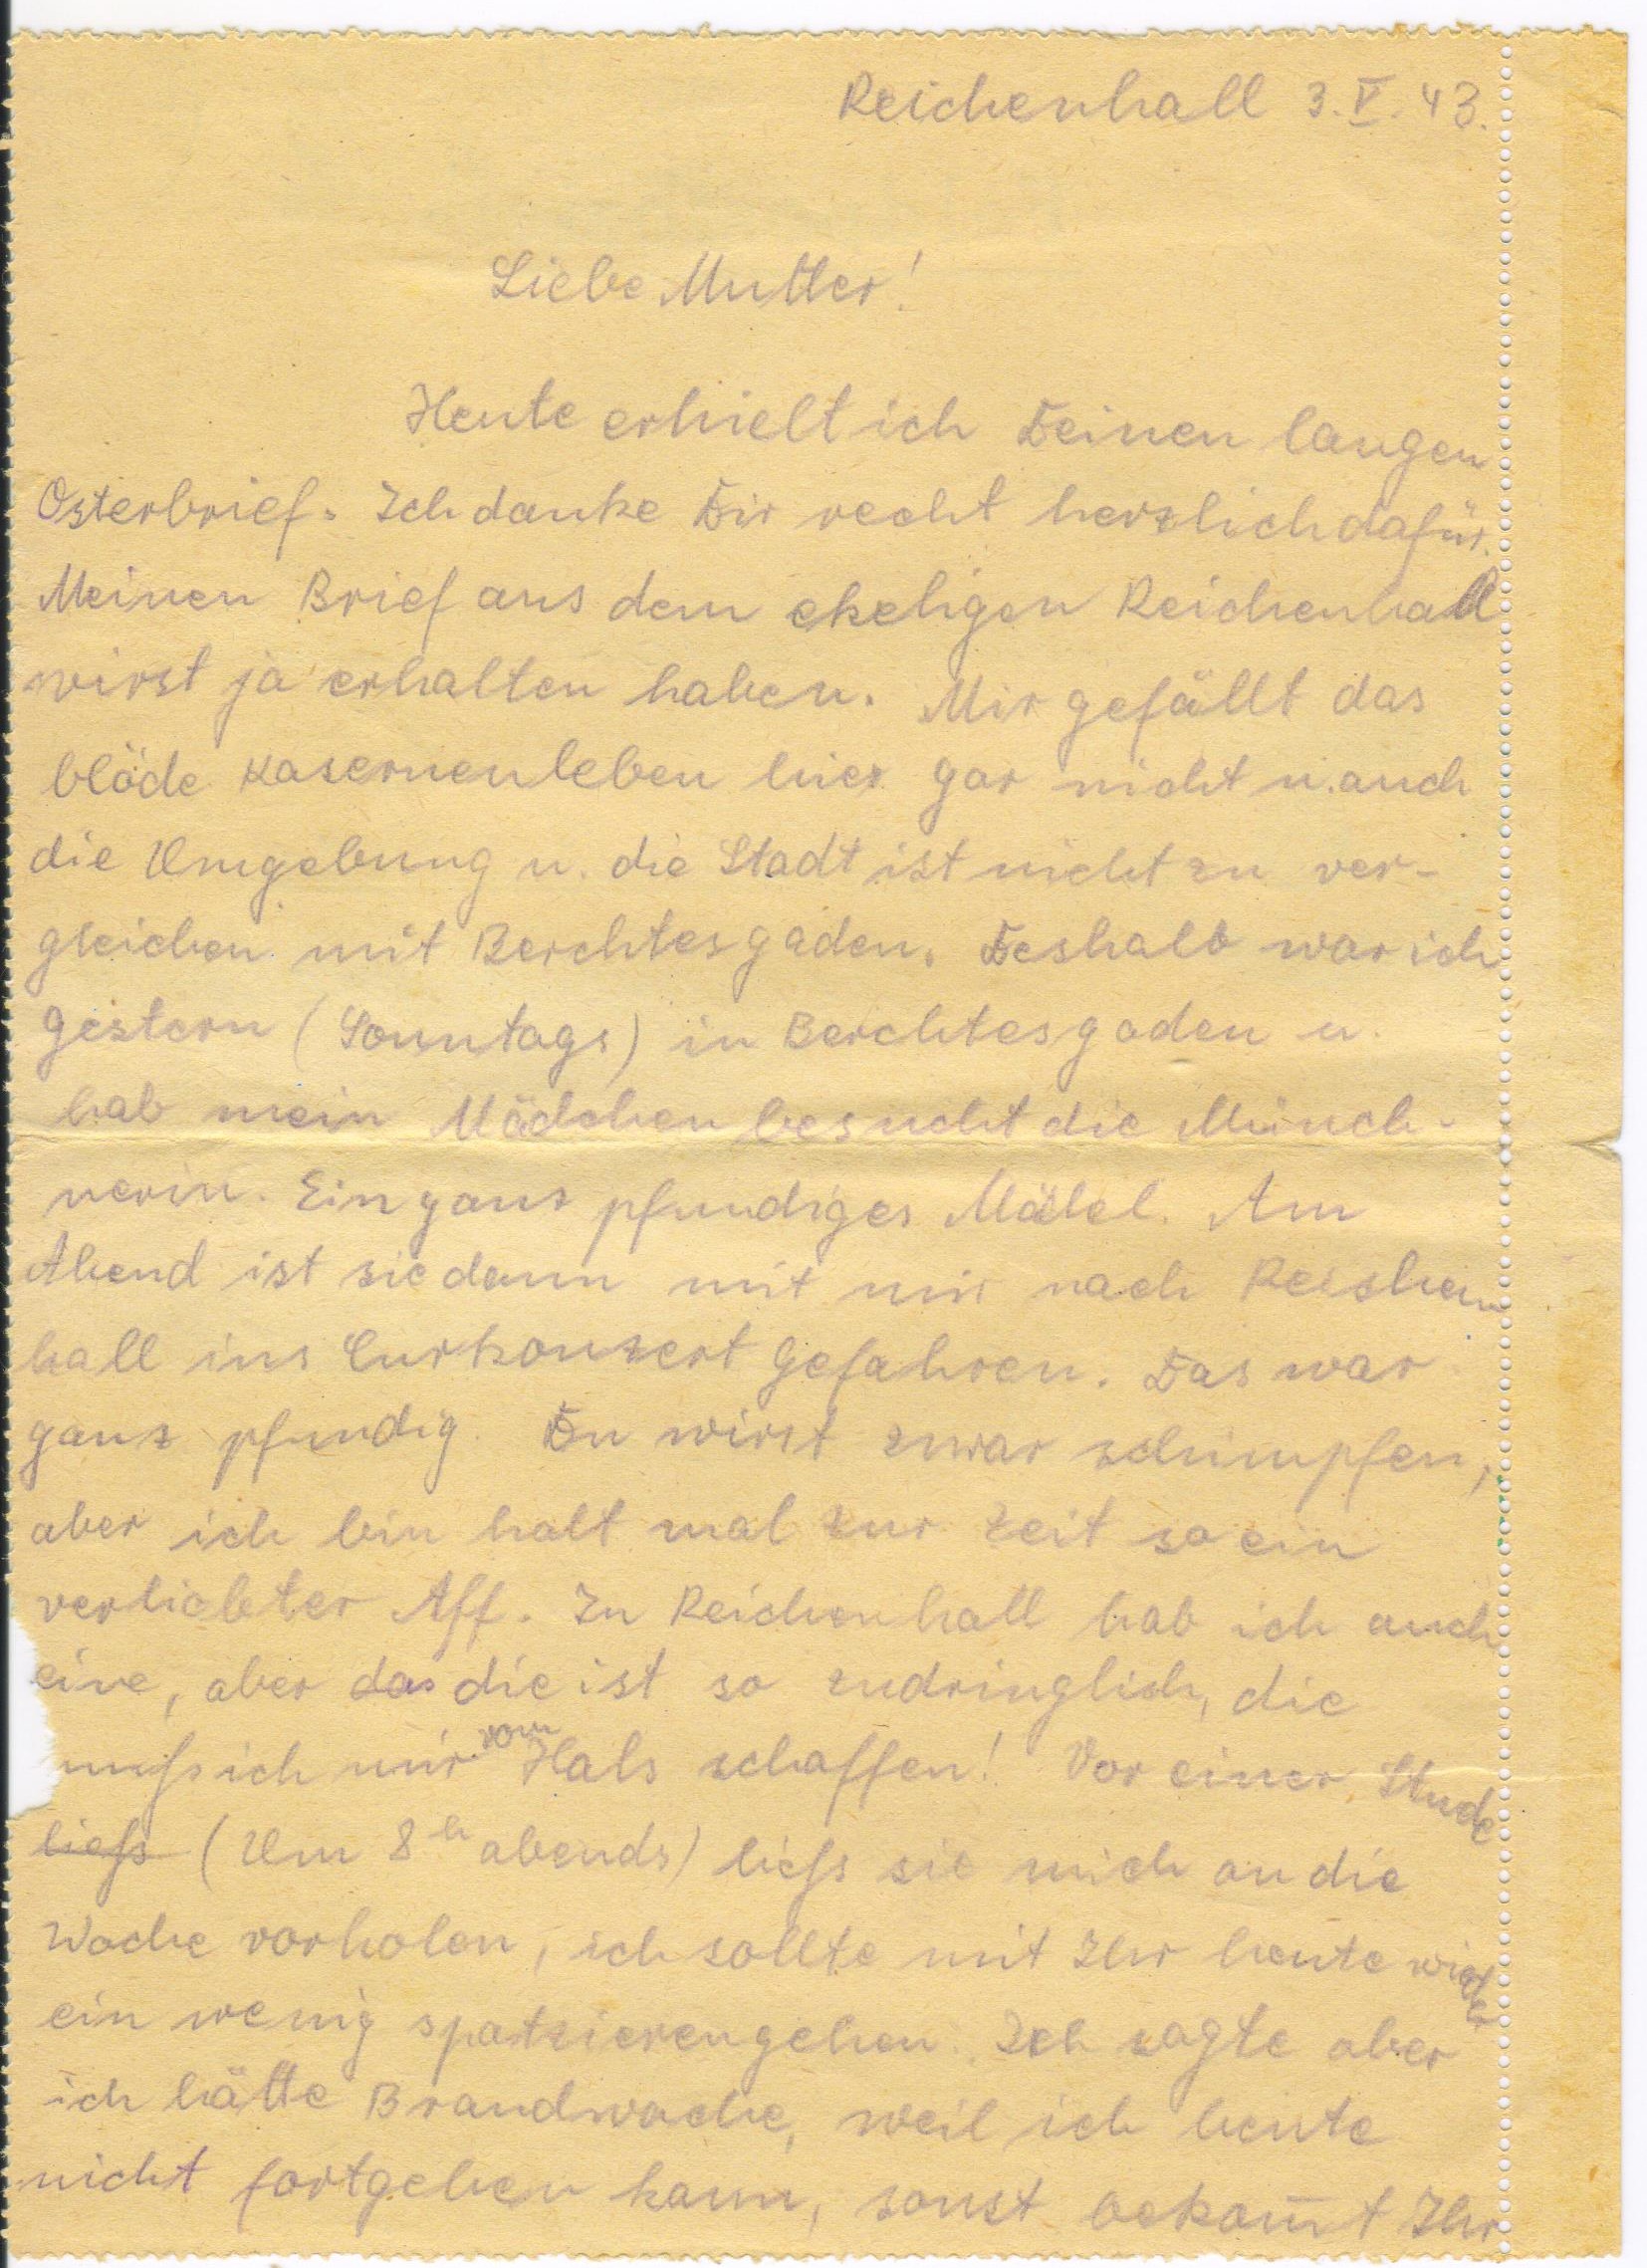 Reichenhall 3.V.43.
Liebe Mutter!
Heute erhielt ich Deinen langen
Osterbrief. Ich danke Dir recht herzlich dafür.
Meinen Brief aus dem ekeligen Reichenhall
wirst ja erhalten haben. Mir gefällt das
blöde Kasernenleben hier gar nicht u. auch
die Umgebung u. die Stadt ist nicht zu ver-
gleichen mit Berchtesgaden. Deshalb war ich
gestern (Sonntags) in Berchtesgaden u.
hab mein Mädchen besucht die Münch-
nerin. Ein ganz pfundiges Mädel. Am
Abend ist sie dann mit mir nach Reichen
hall ins Curkonzert gefahren. Das war
ganz pfundig. Du wirst zwar schimpfen,
aber ich bin halt mal zur Zeit so ein
verliebter Aff. In Reichenhall hab ich auch
eine, aber das die ist so zudringlich, die
muß ich mir vom Hals schaffen! Vor einer Stude
ließ (Um 8 h abends) ließ sie mich an die
Wache vorholen, ich sollte mit Ihr heute wieder
ein wenig spatzierengehen. Ich sagte aber
ich hätte Brandwache, weil ich heute
nicht fortgehen kann, sonst bekom̅t Ihr